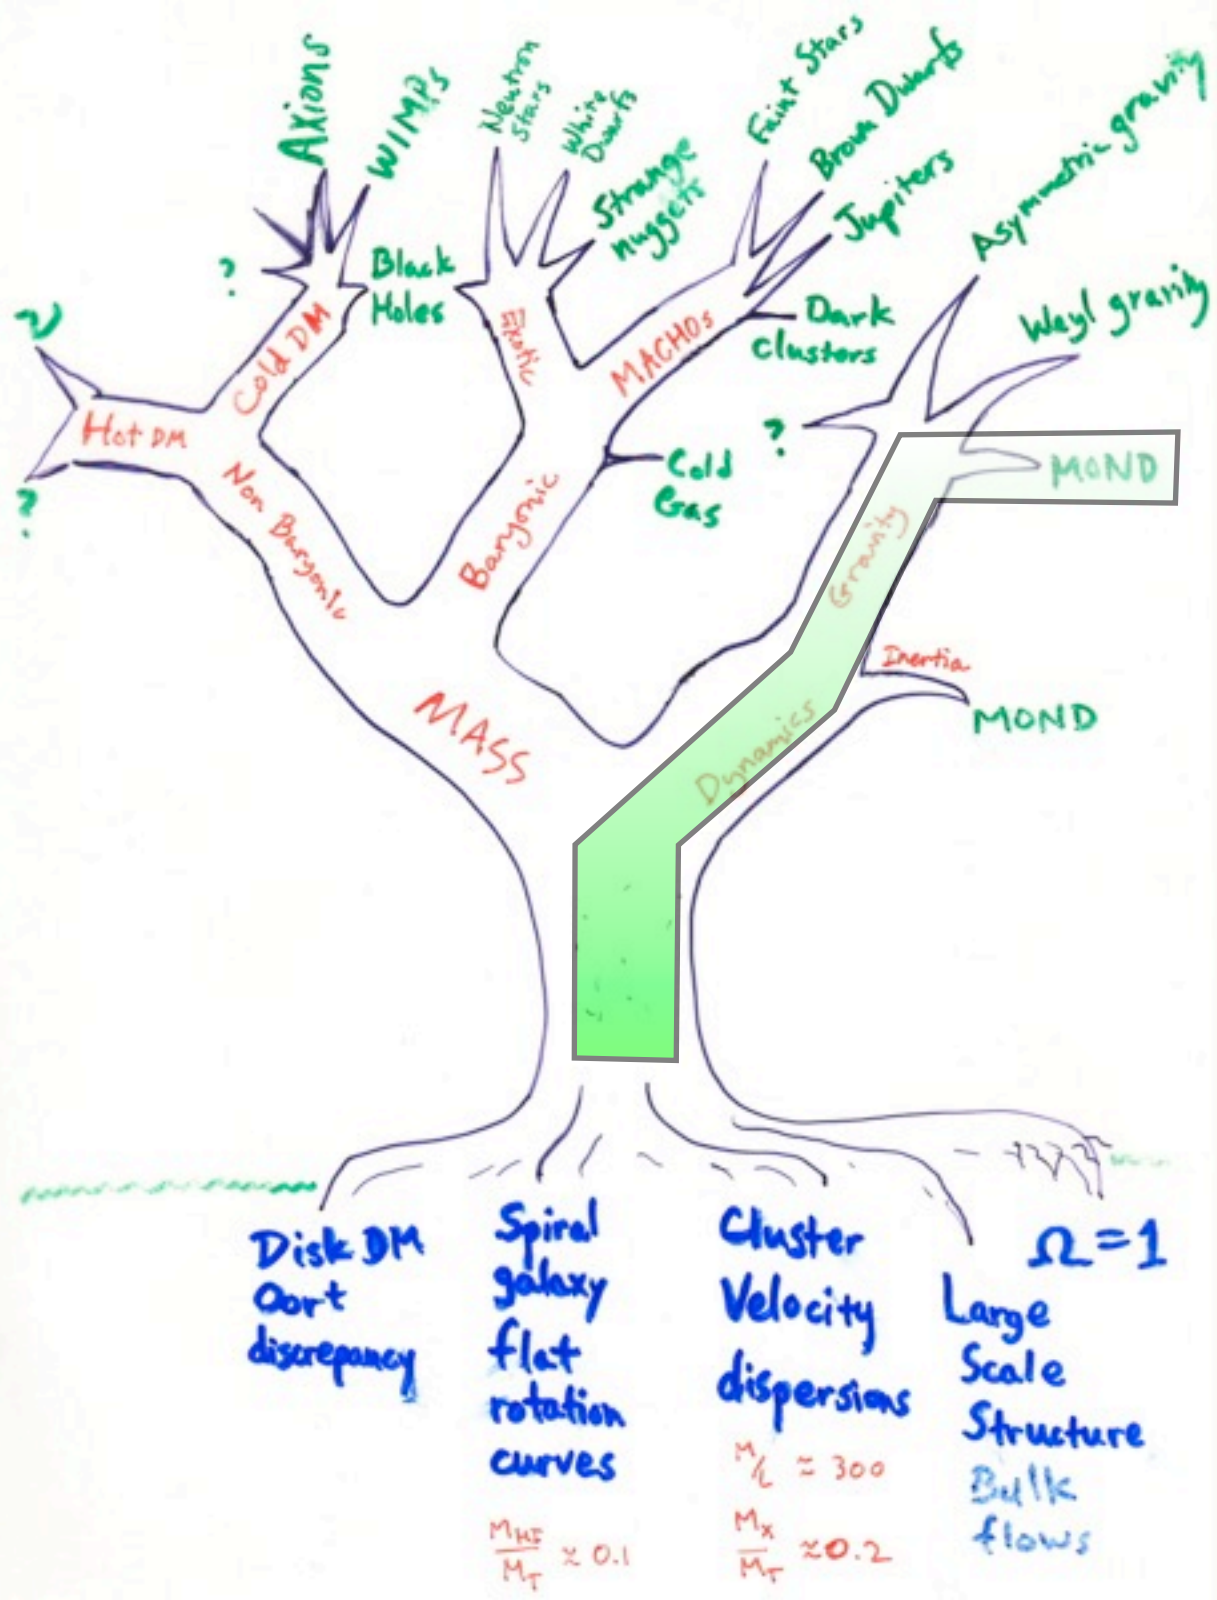 Axions
WIMPs
Neutron
Stars
White
Dwarfs
Strange
nuggets
Faint Stars
Brown Dwarfs
Jupiters
Asymmetric gravity
Weyl gravity
?
Black
Holes
?
Cold DM
Exotic
MACHOs
Dark
clusters
Hot DM
?
?
Cold
Gas
MOND
Non Baryonic
Baryonic
Gravity
Inertia
MOND
MASS
Dynamics
Disk DM
Oort
discrepancy
Spiral
galaxy
flat
rotation
curves
M_HI/M_T ≈ 0.1
Cluster
Velocity
dispersions
M/L ≈ 300
M_X/M_T ≈ 0.2
Ω = 1
Large
Scale
Structure
Bulk
flows